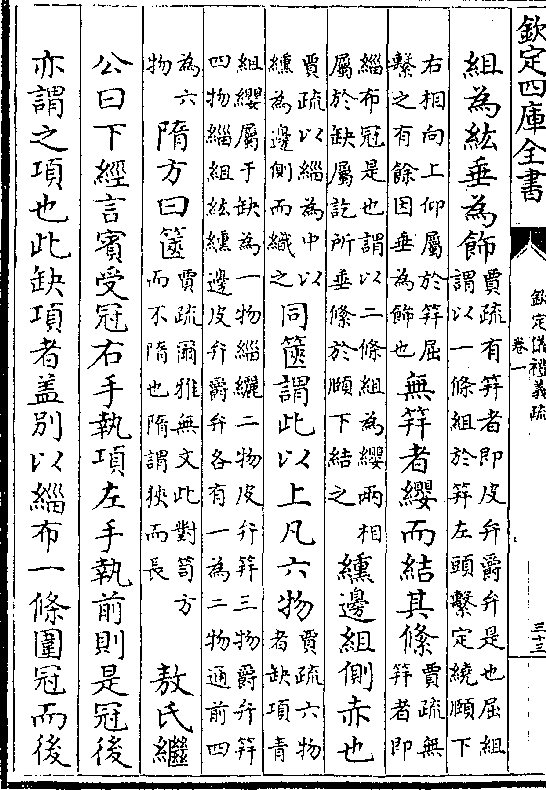 欽定四庫全書
欽定儀禮義疏
卷一
三十三
組為紘垂為飾賈疏有筓者即皮弁爵弁是也屈組
謂以一條組於筓左頭繫定繞頤下
右相向上仰屬於筓屈
繫之有餘因垂為飾也無筓者纓而結其條賈疏無
筓者即
緇布冠是也謂以二條組為纓兩相
屬於缺屬訖所垂條於頤下結之纁邊組側赤也
賈疏以緇為中以
纁為邊側而織之同篋謂此以上凡六物賈疏六物
者缺項青
組纓屬于缺為一物緇纚二物皮弁筓三物爵弁筓
四物緇組紘纁邊皮弁爵弁各有一為二物通前四
為六
物隋方曰篋賈疏爾雅無文此對笥方
而不隋也隋謂狹而長敖氏繼
公曰下經言賓受冠右手執項左手執前則是冠後
亦謂之項也此缺項者盖別以緇布一條圍冠而後